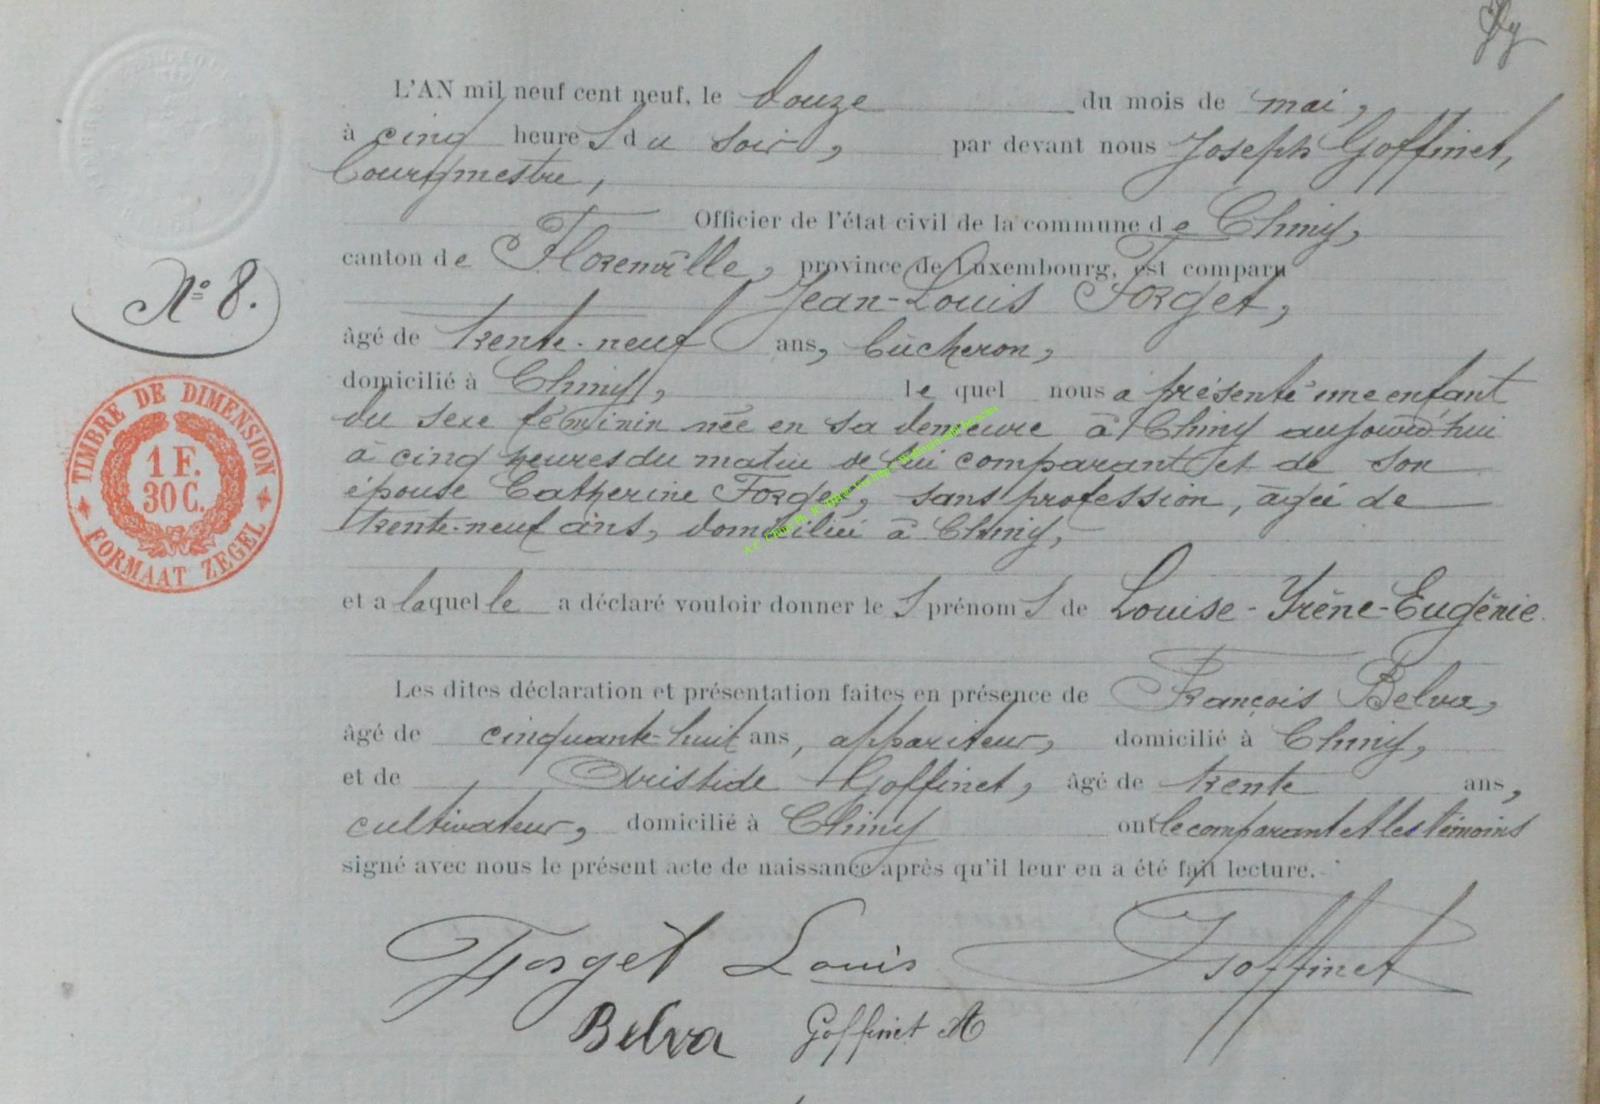 L'AN mil neuf cent neuf, le douze du mois de mai,
à cinq heure s du soir, par devant nous Joseph Goffinet,
bourgmestre,
Officier de l'état civil de la commune de Chiny,
canton de Florenville, province de Luxembourg, est comparu
Jean-Louis Forget,
âgé de trente-neuf ans, bûcheron,
domicilié à Chiny, le quel nous a présenté une enfant
du sexe féminin née en sa demeure à Chiny aujourd'hui
à cinq heures du matin de lui comparant et de son
épouse Catherine Forget, sans profession, âgée de
trente-neuf ans, domiciliée à Chiny,
et a laquelle a déclaré vouloir donner le s prénom s de Louise-Yrène-Eugénie.
Les dites déclaration et présentation faites en présence de François Belva,
âgé de cinquante-huit ans, appariteur, domicilié à Chiny,
et de Aristide Goffinet, âgé de trente ans,
cultivateur, domicilié à Chiny ont le comparant et les témoins
signé avec nous le présent acte de naissance après qu'il leur en a été fait lecture.
Forget Louis Goffinet
Belva Goffinet A
No 8.
TIMBRE DE DIMENSION
1 F.
30 C.
FORMAAT ZEGEL